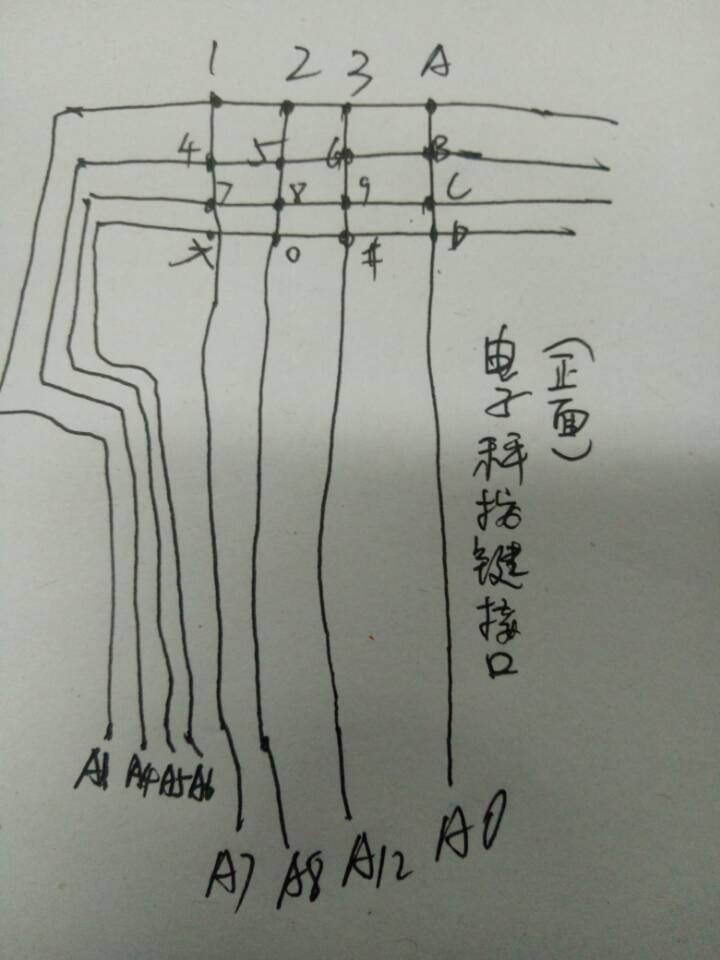 1 2 3 A
4 5 6 B
7 8 9 C
* 0 # D
(正面)
电子秤按键接口
A1 A4 A5 A6
A7 A8 A12 A0